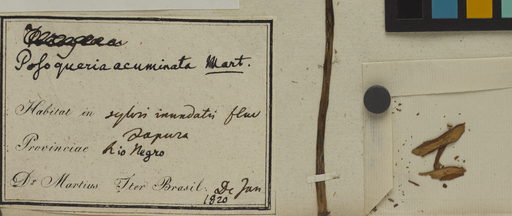 Posoqueria acuminata Mart.
Habitat in sylvis inundatis fluv
Japura
Provinciae Rio Negro
Dr. Martius Iter Brasil. De Jan
1820